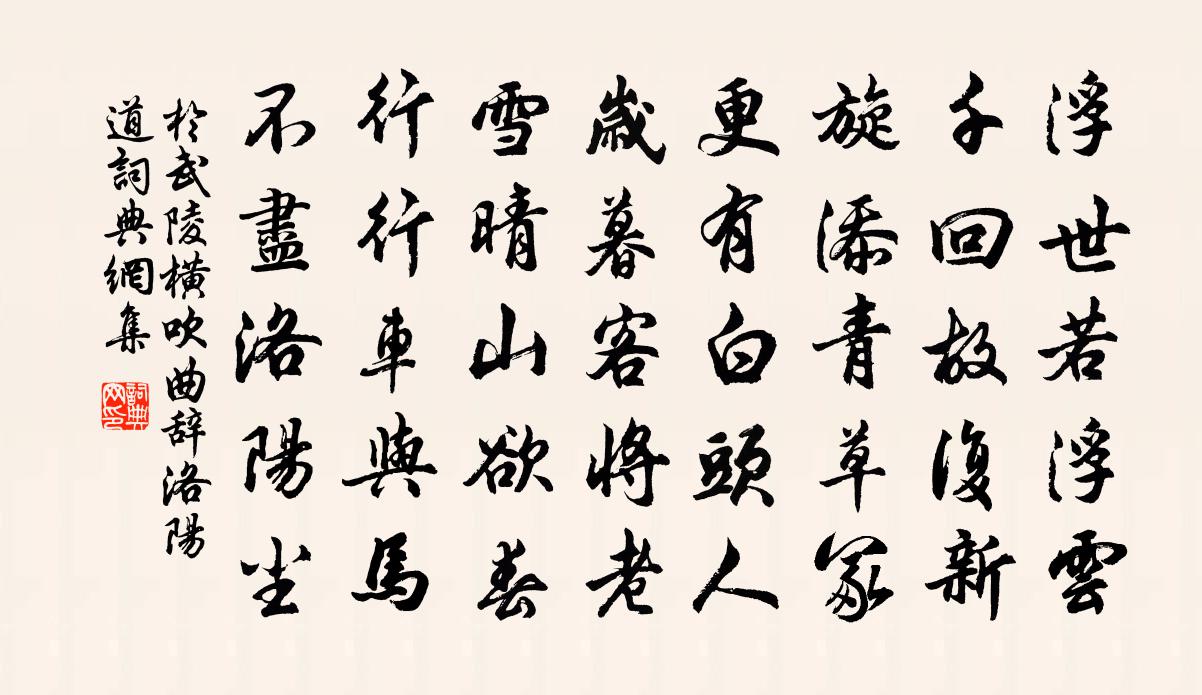 浮世若浮雲
千回故復新
旋添青草冢
更有白頭人
歲暮客將老
雪晴山欲春
行行車與馬
不盡洛陽塵
於武陵橫吹曲辞洛陽
道詞典網集
詞典
网印